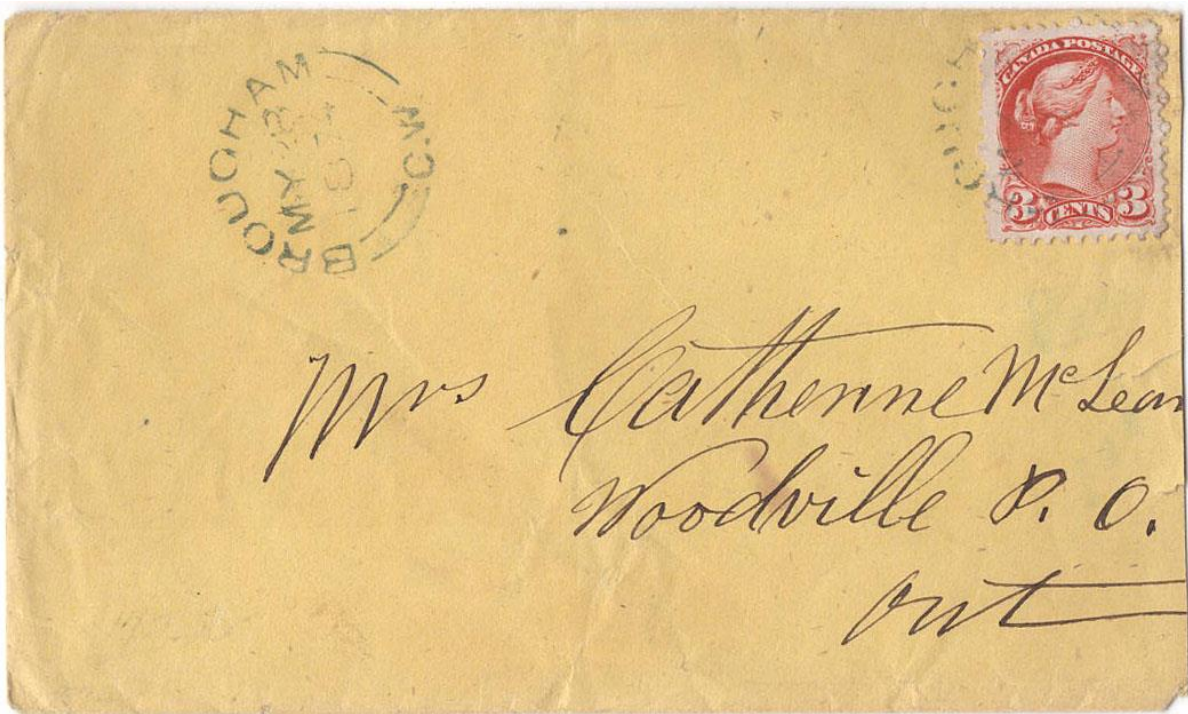 BROUGHAM C.W
MY
187
CANADA POSTAGE
3 CENTS 3
Mrs Catherine McLean
Woodville P. O.
Ont